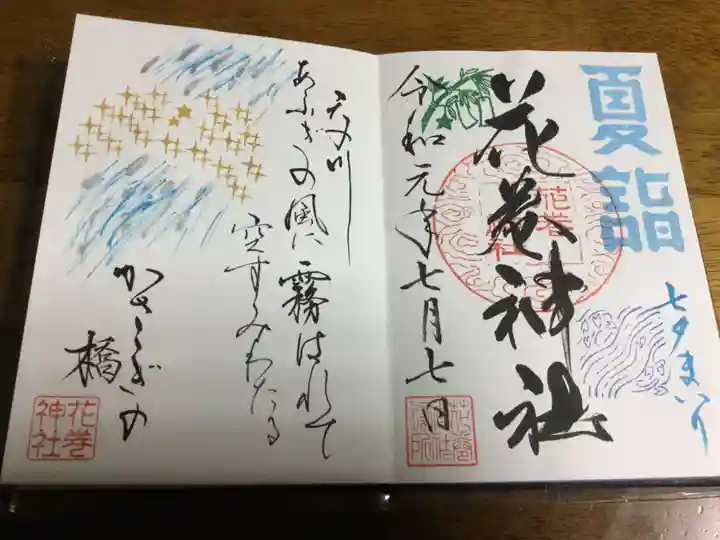 夏詣
七夕まいり
花巻神社
花巻
神社
令和元年七月七日
天の川
あふぎの風に霧はれて
空すみわたる
かささぎの
橋
花巻
神社